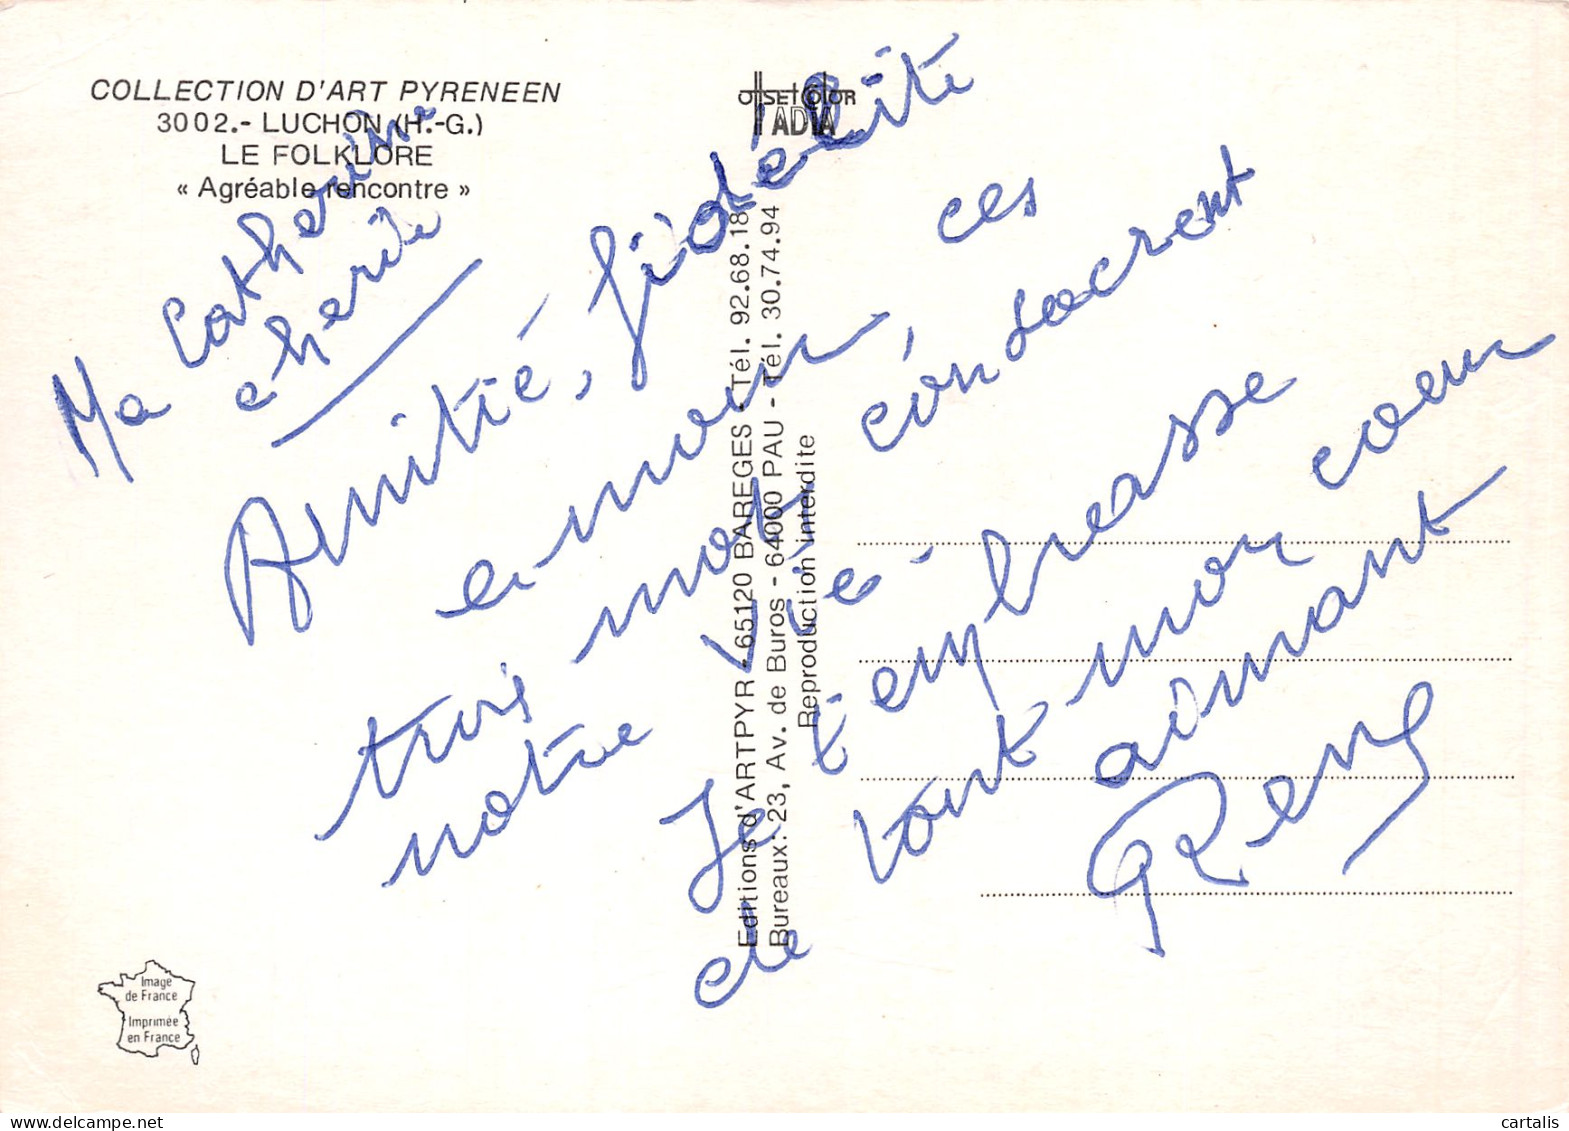 COLLECTION D'ART PYRENEEN
3002.- LUCHON (H.-G.)
LE FOLKLORE
« Agréable rencontre »
OFFSET COLOR
ADIA
Ma Catherine
cherie
Amitié, fidélité
amour, ces
trois mots consacrent
notre vie.
Je t'embrasse
de tout mon coeur
aimant
Reny
Editions d'ARTPYR - 65120 BAREGES - Tél. 92.68.18
Bureaux: 23, Av. de Buros - 64000 PAU - Tél. 30.74.94
Reproduction interdite
Image
de France
Imprimée
en France
cartalis